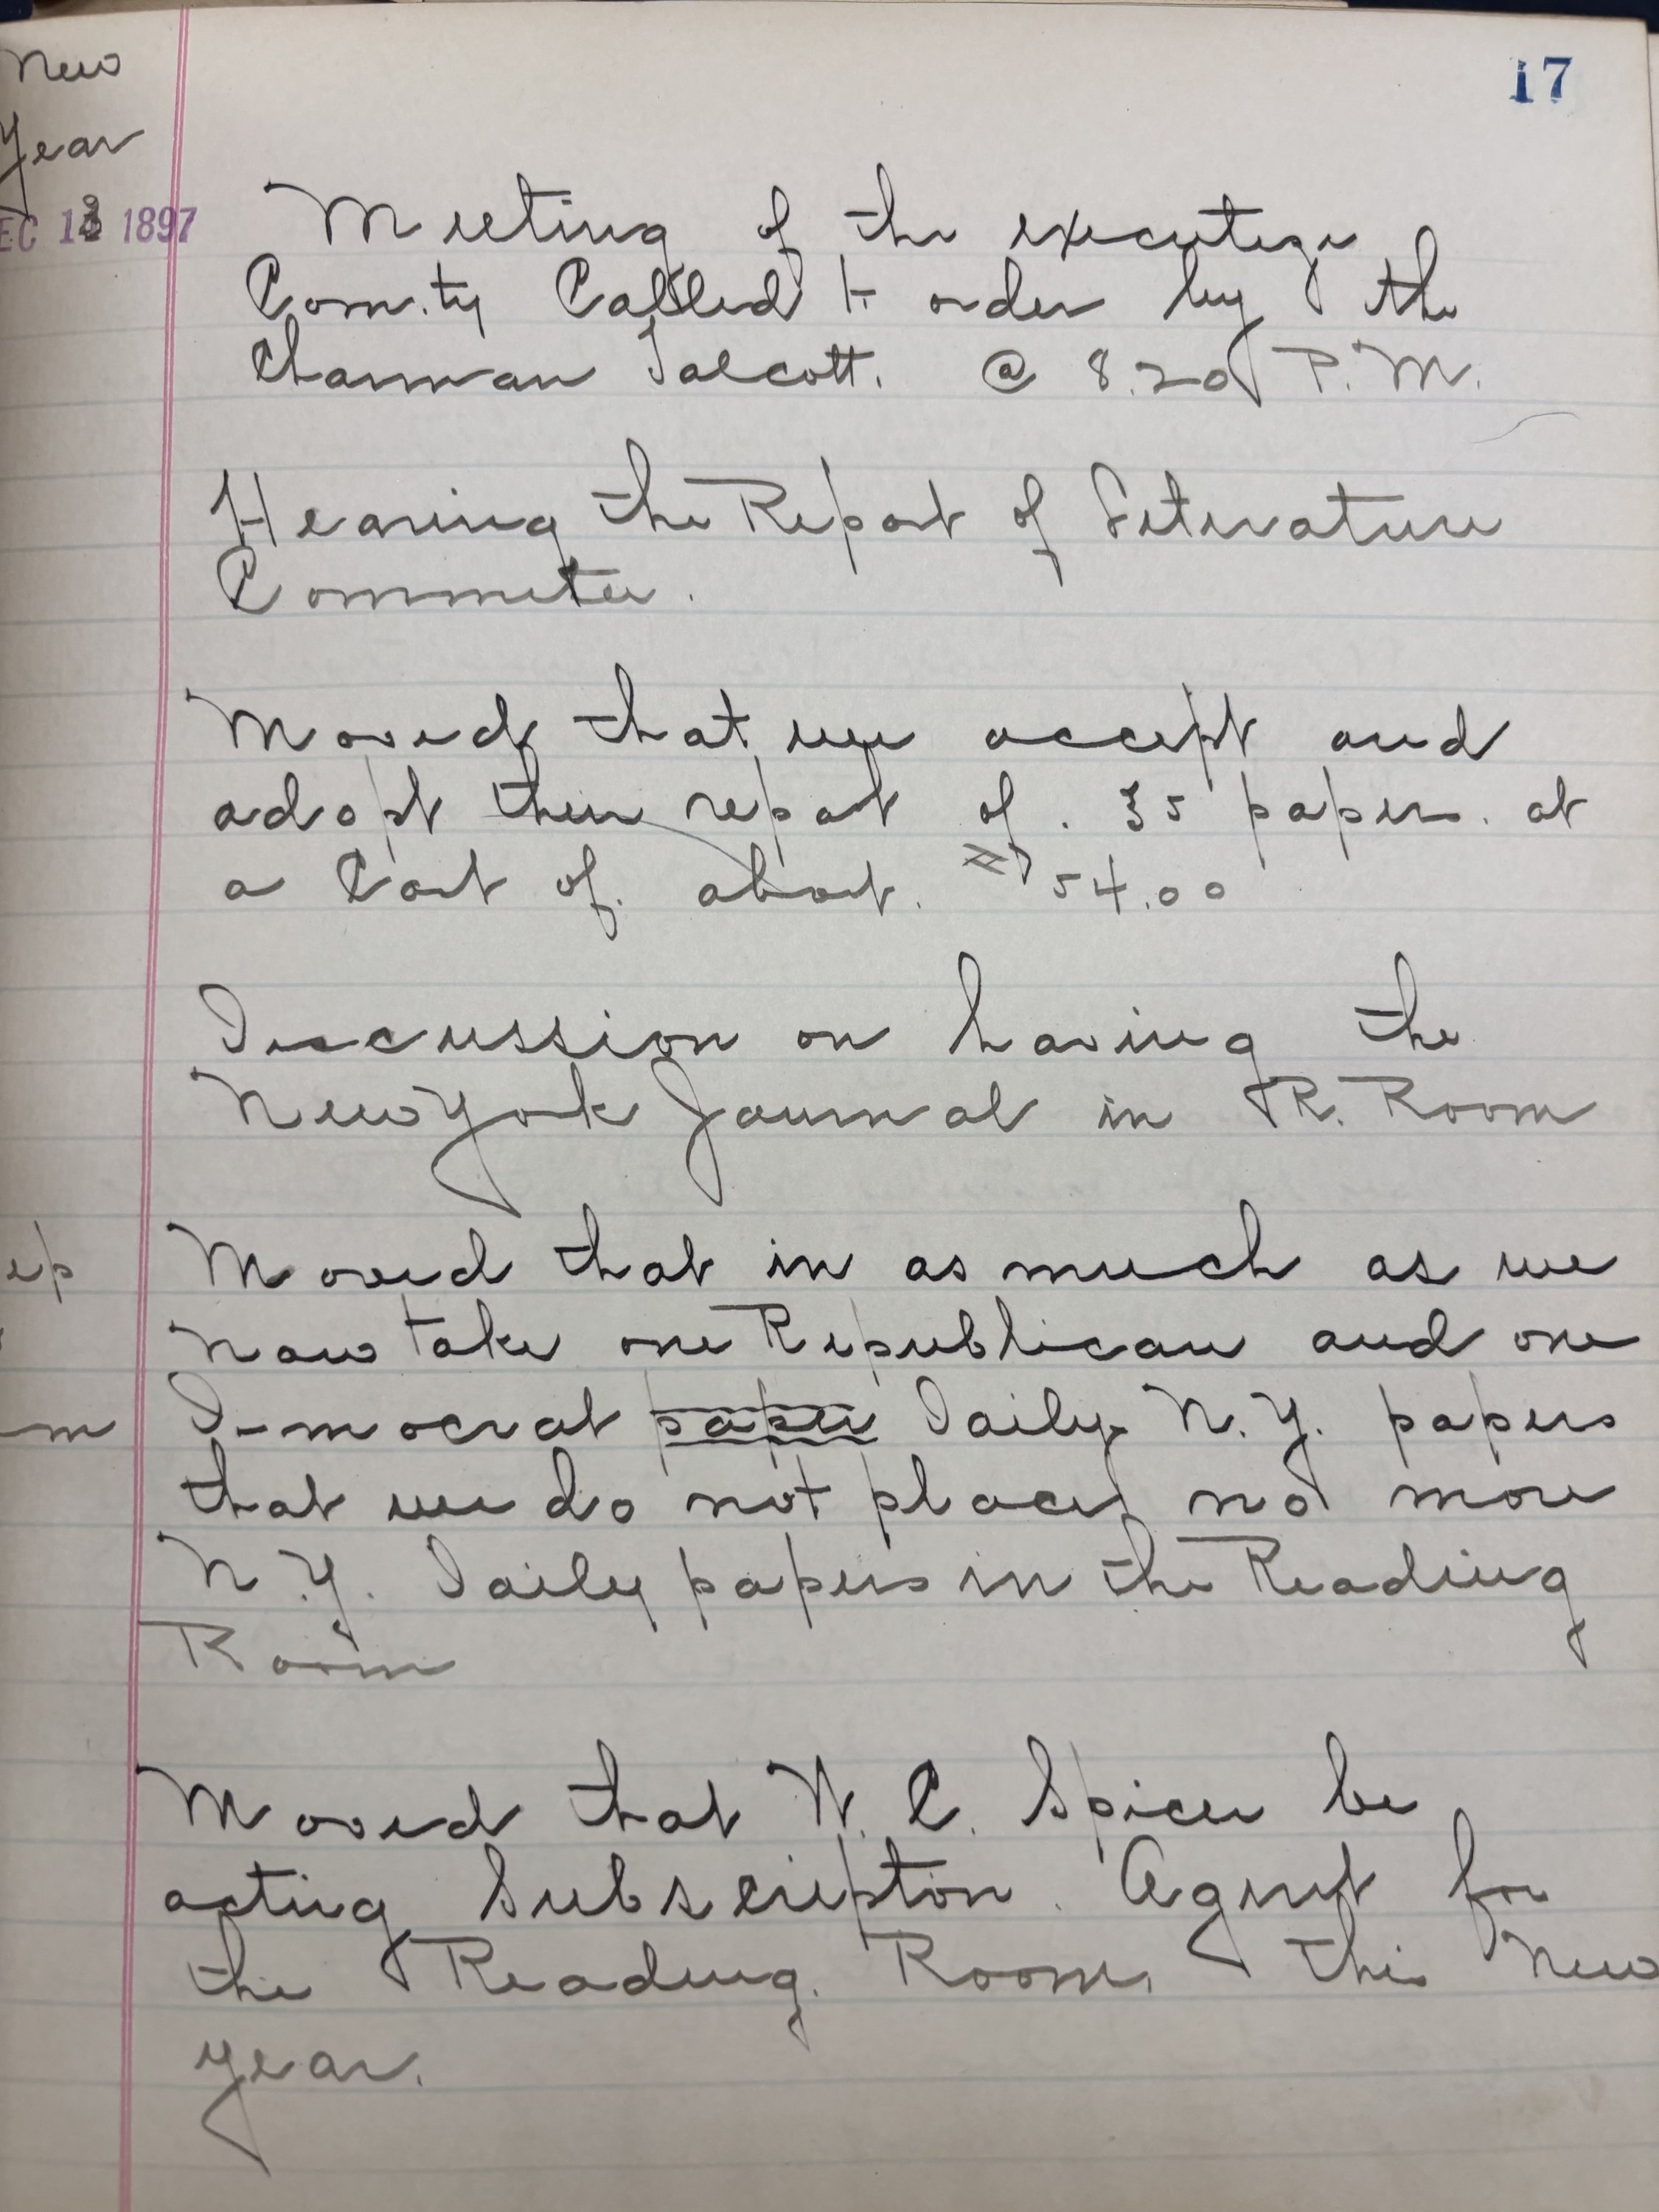 17
New
Year
EC 13 1897
Meeting of the executive
Com.ty Called to order by the
Chairman Talcott. @ 8.20 P.M.
Hearing the Report of Literature
Commitee.
Moved that we accept and
adopt their report of . 35 papers. at
a Cost of. about. $54.00
Discussion on having the
New York Journal in R. Room
Moved that in as much as we
ep
now take one Republican and one
Democrat paper Daily N.Y. papers
m
that we do not place no more
N.Y. Daily papers in the Reading
Room
Moved that W. C. Spicer be
acting Subscripton. Agent for
the Reading. Room, this New
year.